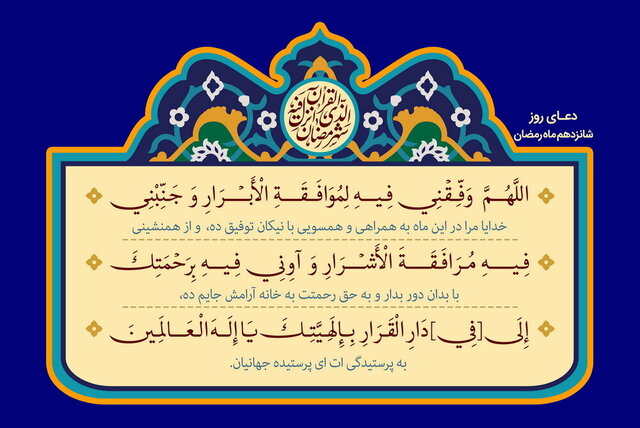 شهر رمضان الذی انزل فیه القرآن
دعـای روز
شانزدهم ماه رمضان
اللَّهُمَّ وَفِّقْنِي فِيهِ لِمُوَافَقَةِ الْأَبْرَارِ وَ جَنِّبْنِي
خدایا مرا در این ماه به همراهی و همسویی با نیکان توفیق ده، و از همنشینی
فِيهِ مُرَافَقَةَ الْأَشْرَارِ وَ آوِنِي فِيهِ بِرَحْمَتِكَ
با بدان دور بدار و به حق رحمتت به خانه آرامش جایم ده،
إِلَى [فِي] دَارِ الْقَرَارِ بِإِلَهِيَّتِكَ يَا إِلَهَ الْعَالَمِينَ
به پرستیدگی ات ای پرستیده جهانیان.